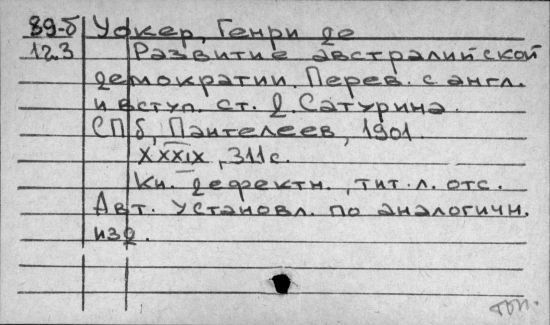 89-б Уокер, Генри де
12.3 Развитие австралийской
демократии. Перев. с англ.
и вступ. ст. Д. Сатурина.
СПб, Пантелеев, 1901.
XXXIX, 311 с.
Кн. дефектн., тит. л. отс.
Авт. установл. по аналогичн.
изд.